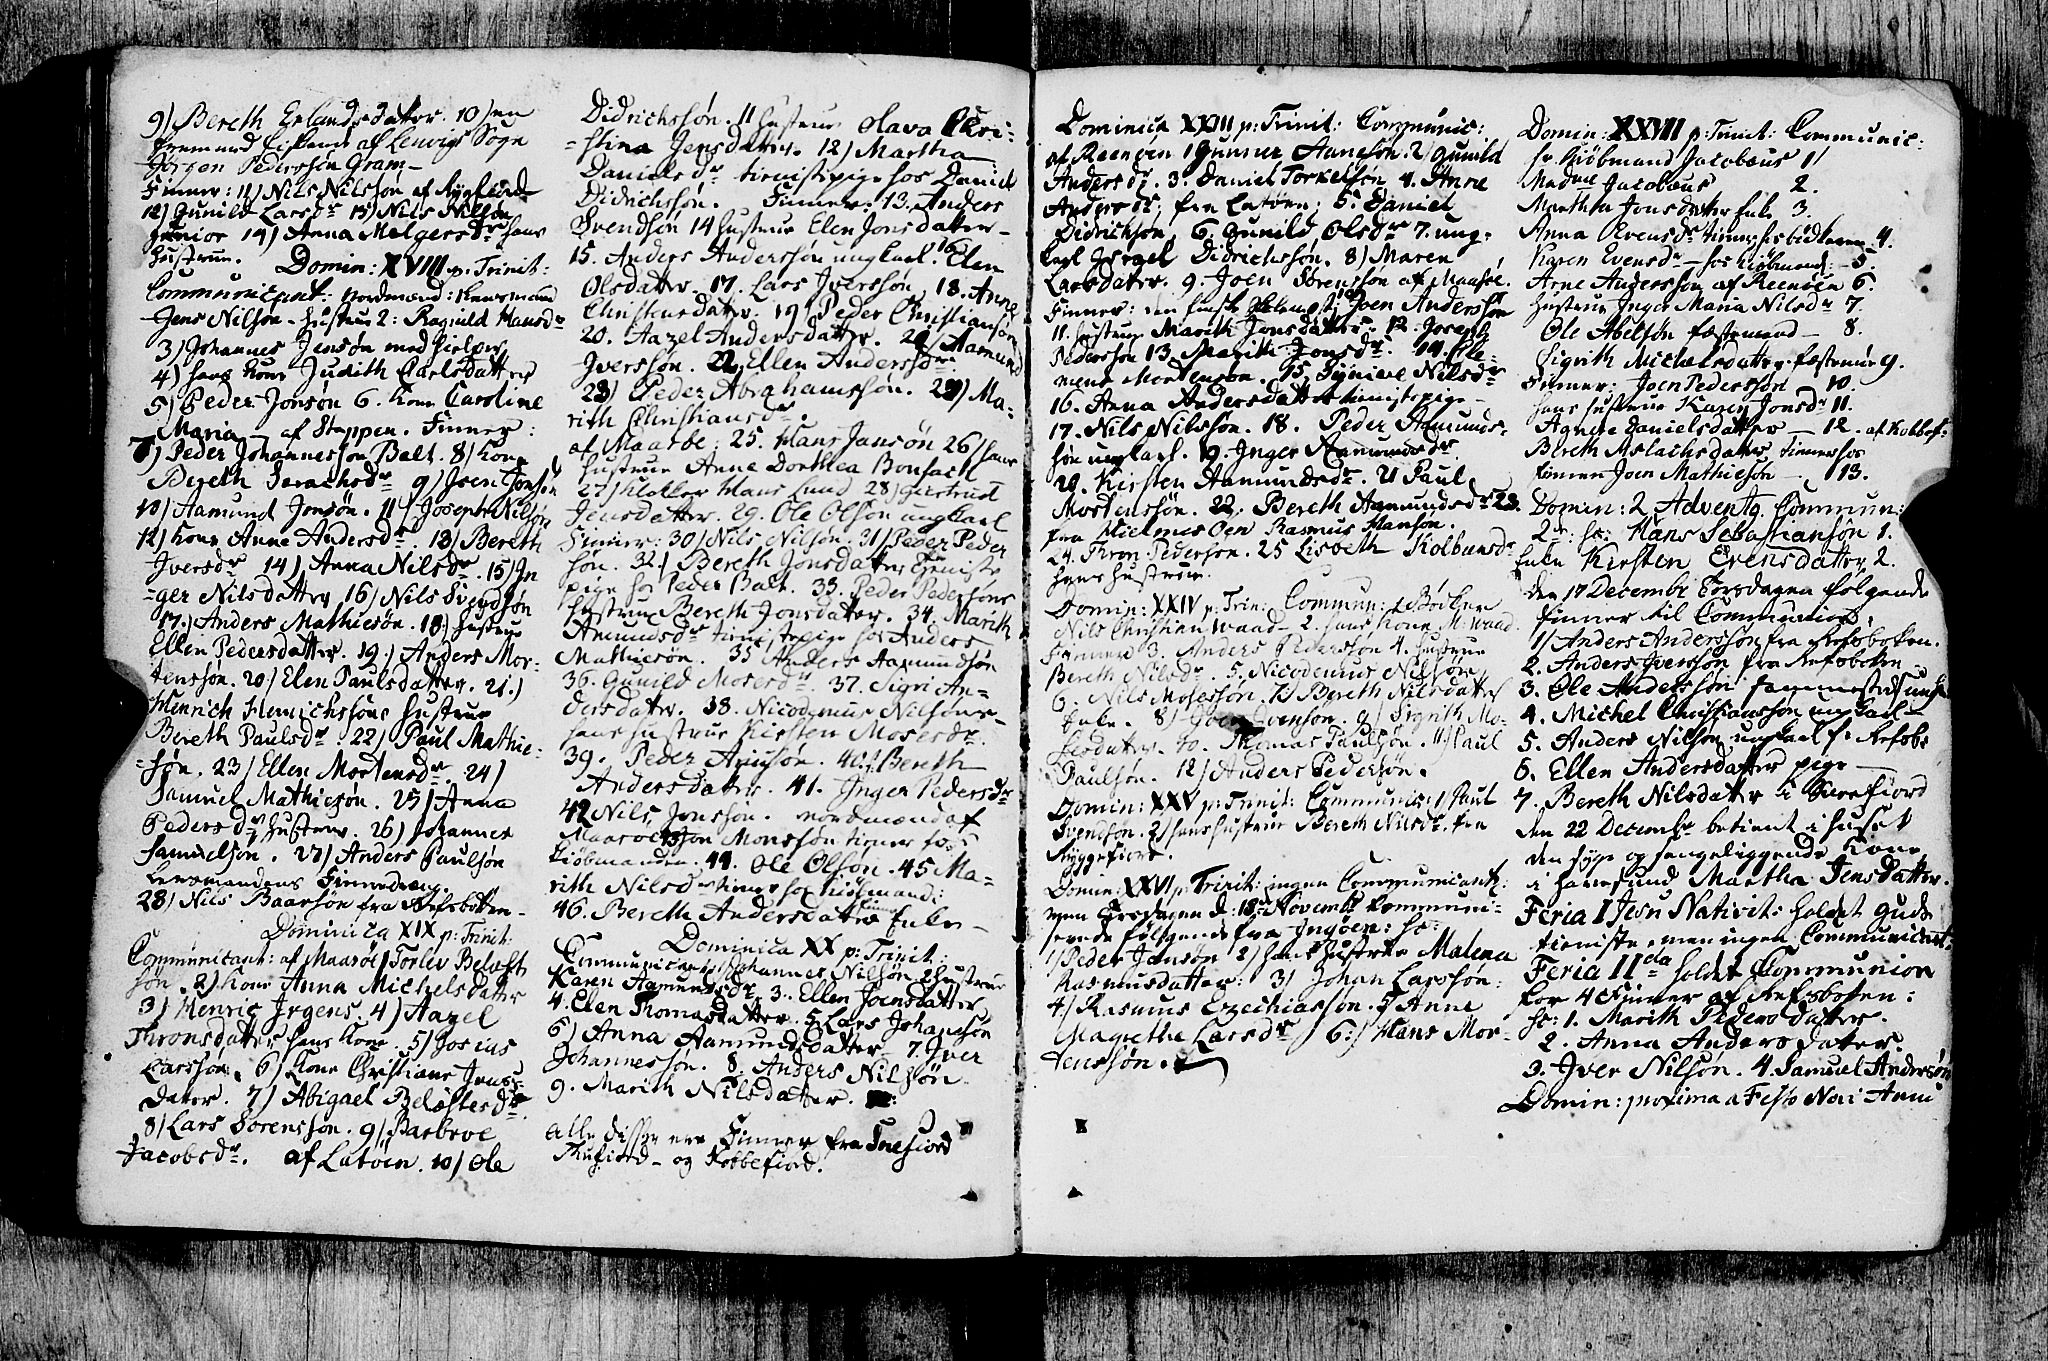 9) Bereth Erlandsdatter. 10) en
fremmed fisker af Lenvigs Sogn
Jørgen Pederssøn Gram —
Finner: 11) Nils Nilsøn af Ryg
12) Gunild Larsdr 13) Nils Nilssøn
junior 14) Anna Melgersdr hans
hustrue. Domin: XVIII p: Trinit:
Communicant: nordmænd: Lensmand
Jens Nilsøn — hustrue 2: Ragnild Hansdr
3) Johannes Jensøn
4) hans kone Judith Carlsdatter
5) Peder Jonsøn 6. kone Caroline
Maria — af Stappen. Finner:
7) Peder Johannessøn Balt. 8) kone
Bereth 9) Joen Jonsøn
10) Aamund Jonsøn. 11) Joseph Nilsøn
12) kone Anne Andersdr 13) Bereth
Iversdr 14) Anna Nilsdr. 15) In
=ger Nilsdatter 16) Nils Svendsøn
17.) Anders Mathiesøn. 18.) hustrue
Ellen Pedersdatter. 19.) Anders Mor-
tenssøn. 20) Elen Paulsdatter. 21.)
Henrich Henrichssøns hustrue
Bereth Paulsdr. 22) Paul Mathie-
=søn. 23) Ellen Mortensdr. 24)
Samuel Mathiesøn. 25) Anna
Pedersdr hustrue. 26) Johannes
Samuelsøn. 27) Anders Paulsøn
Lensmandens Finnedreng.
28) Nils Baarsøn fra Refsbotten —
Dominica XIX p: Trinit:
Communicant: af Maasøe 1) Torlev
søn. 2) kone Anna Michelsdatter
3) Henric Irgens. 4) Aazel
Thronsdatter hans kone. 5) Josias
Larssøn. 6) kone Christiane Jens-
dater. 7) Abigael
8) Lars Sørenssøn. 9) Barbroe
Jacobsdr. af Latøen. 10) Ole
Didrichssøn. 11 hustrue Olava Chri-
=stina Jensdatter. 12) Martha
Danielsdr tienistpige hos Daniel
Didrichssøn. Finner: 13. Anders
Svendsøn 14 hustrue Elen Jonsdater —
15. Anders Anderssøn ungkarl. 16 Elen
Olsdatter. 17. Lars Iverssøn, 18. Anne
Christensdater. 19) Peder Christiansøn
20. Aazel Andersdatter. 21) Aamund
Iverssøn. 22. Ellen Andersdr.
23) Peder Abrahamssøn. 24) Ma-
rith Christiansdr.
af Maasøe: 25. Hans Jansøn 26) hans
hustrue Anne Dorthea Bonsach
27) Klokker Hans Lund 28) Giertrud
Jensdatter. 29. Ole Olsøn ungkarl
Finner: 30) Nils Nilsøn. 31) Peder Peder
søn. 32.) Bereth Jonsdater tieniste
pige hos Peder Balt. 33. Peder Pedersøns
hustrue Bereth Jonsdater. 34. Marith
Amundsdr tienistepige hos Anders
Mathiesøn. 35 Anders Aamundsøn
36. Gunild Mosesdr. 37. Sigri An=
dersdater. 38. Nicodemus Nilsøns —
hans hustrue Kirsten Mosesdr.
39. Peder Arnisøn. 40. Bereth
Andersdater. 41. Inger Pedersdr
42 Nils Jonssøn. nordmænd af
Maasøe 43 Jon Monssøn tiener hos
Kiøbmanden. 44. Ole Olsøn. 45 Ma=
rith Nilsdr tiener hos Kiøbmand:
46. Bereth Andersdatter Enke —
Dominica XX p: Trinit:
Communicant: 1) Johannes Nilsøn 2 hustrue
Karen Aamundsdr 3. Ellen Joensdatter
4. Elen Thomasdatter. 5. Lars Johansøn
6) Anna Aamundsdatter 7. Iver
Johannessøn. 8. Anders Nilssøn.
9. Marith Nilsdatter.
Alle disse ere Finner fra Snefiord
— og Kobbefiord.
Dominica XXIII p: Trinit: Communic:
af Reenøen 1 Gunner Aanesøn. 2) Gunild
Andersdr. 3. Daniel Torkelsøn 4. Anne
Andersdr. fra Latøen: 5. Daniel
Didrichsøn, 6. Gunild Olsdr 7. ung-
karl Jørgel Didrichssøn. 8) Maren
Larsdater. 9. Joen Sørenssøn af Maasøe.
Finner: 10 Joen Anderssøn
11. hustrue Marith Jonsdatter. 12. Joseph
Pederssøn 13. Marith Jonsdr. 14. Cle-
mens Mortensøn. 15. Synneve Nilsdr
16. Anna Andersdatter tienistepige —
17. Nils Nilssøn. 18. Peder Aamunds-
søn ungkarl. 19. Inger Aamundsdr
20. Kirsten Aamundsdr. 21 Paul
Mortenssøn. 22. Bereth Aamundsdr 23.
fra Hielmes Øen Rasmus Hansøn.
24. Thron Pedersøn. 25 Lisbeth Kolbænsdr
hans hustrue.
Domin: XXIV p: Trin: Commun: 1 Bødker
Nils Christian Waad — 2. hans kone M: Waad.
Finner 3. Anders Pedersøn 4. hustrue
Bereth Nilsdr. 5. Nicodemus Nilsøn
6. Nils Mosessøn. 7.) Bereth Nilsdatter
Enke. 8) Iver Evensøn. 9) Sigrith Mo-
sesdater. 10. Thomas Paulsøn. 11) Paul
Paulsøn. 12) Anders Pedersøn.
Domin: XXV p: Trinit: Communic: 1) Paul
Svendsøn. 2) hans hustrue Bereth Nilsdr. fra
Ryggefiord.
Domin: XXVI p: Trinit: ingen Communicant:
men Tirsdagen d: 18 Novembr communi-
cerede følgende fra Ingøen: sc:
1) Peder Jansøn 2) hans hustrue Malena
Rasmusdatter: 3) Johan Larssøn:
4) Rasmus Ezechiassøn. 5 Anne
Magrethe Larsdr 6.) Hans Mor-
tenssøn.
Domin: XXVII p: Trinit: Communic:
hr. Kiøbmand Jacobæus 1
Madme Jacobæus 2.
Martha Jonsdatter Enke 3.
Anna Evensdr tiener 4.
Karen Evensdr — hos Kiøbmand: — 5.
Arne Anderssøn af Reenøen 6.
hustrue Inger Maria Nilsdr 7.
Ole Abelsøn fæstemand — 8.
Sigrith Michelsdatter fæstemøe 9.
Finner: Joen Pederssøn — 10.
hans hustrue Karen Jonsdr 11.
Agnete Danielsdatter — 12. af Kobbef:
Bereth Aslachsdater, tiener hos
finnen Joen Mathiesøn — 13.
Domin: 2 Advent9 Commun:
2: sc: Hans Sebastiansøn 1.
Enke Kirsten Evensdatter 2.
Den 17 Decembr Torsdagen følgende
Finner til Communion:
1) Anders Anderssøn fra Refsboten.
2. Anders Iverssøn fra Refsboten —
3. Ole Anderssøn
4. Michel Christianssøn ungkarl —
5. Anders Nilsøn ungkarl f: Refsb:
6. Ellen Andersdatter pige —
7. Bereth Nilsdatter i Snefiord
Den 22 Decembr betient i huset
den syge og sengeliggende kone
i Havøsund Martha Jensdatter.
Feria I Jesu Nativit: holdet Guds
tieniste, men ingen Communicant:
Feria IIda holdet Communion
for 4 Finner af Refsboten:
sc: 1. Marith Pedersdatter.
2. Anna Andersdater.
3. Iver Nilsøn. 4. Samuel Andersøn
Domin: proxima a Festo Novi Anni